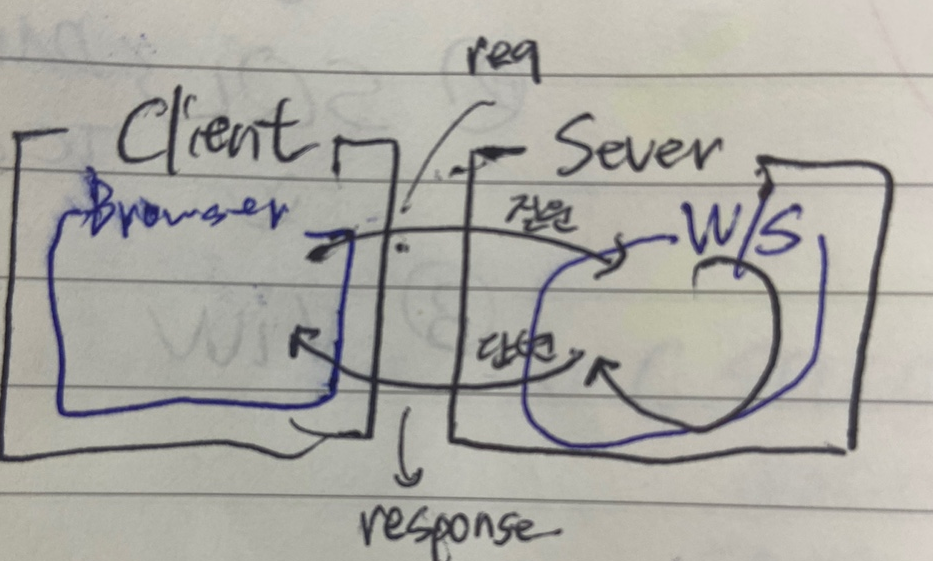 req
Client
Sever
Browser
W/S
답변
response